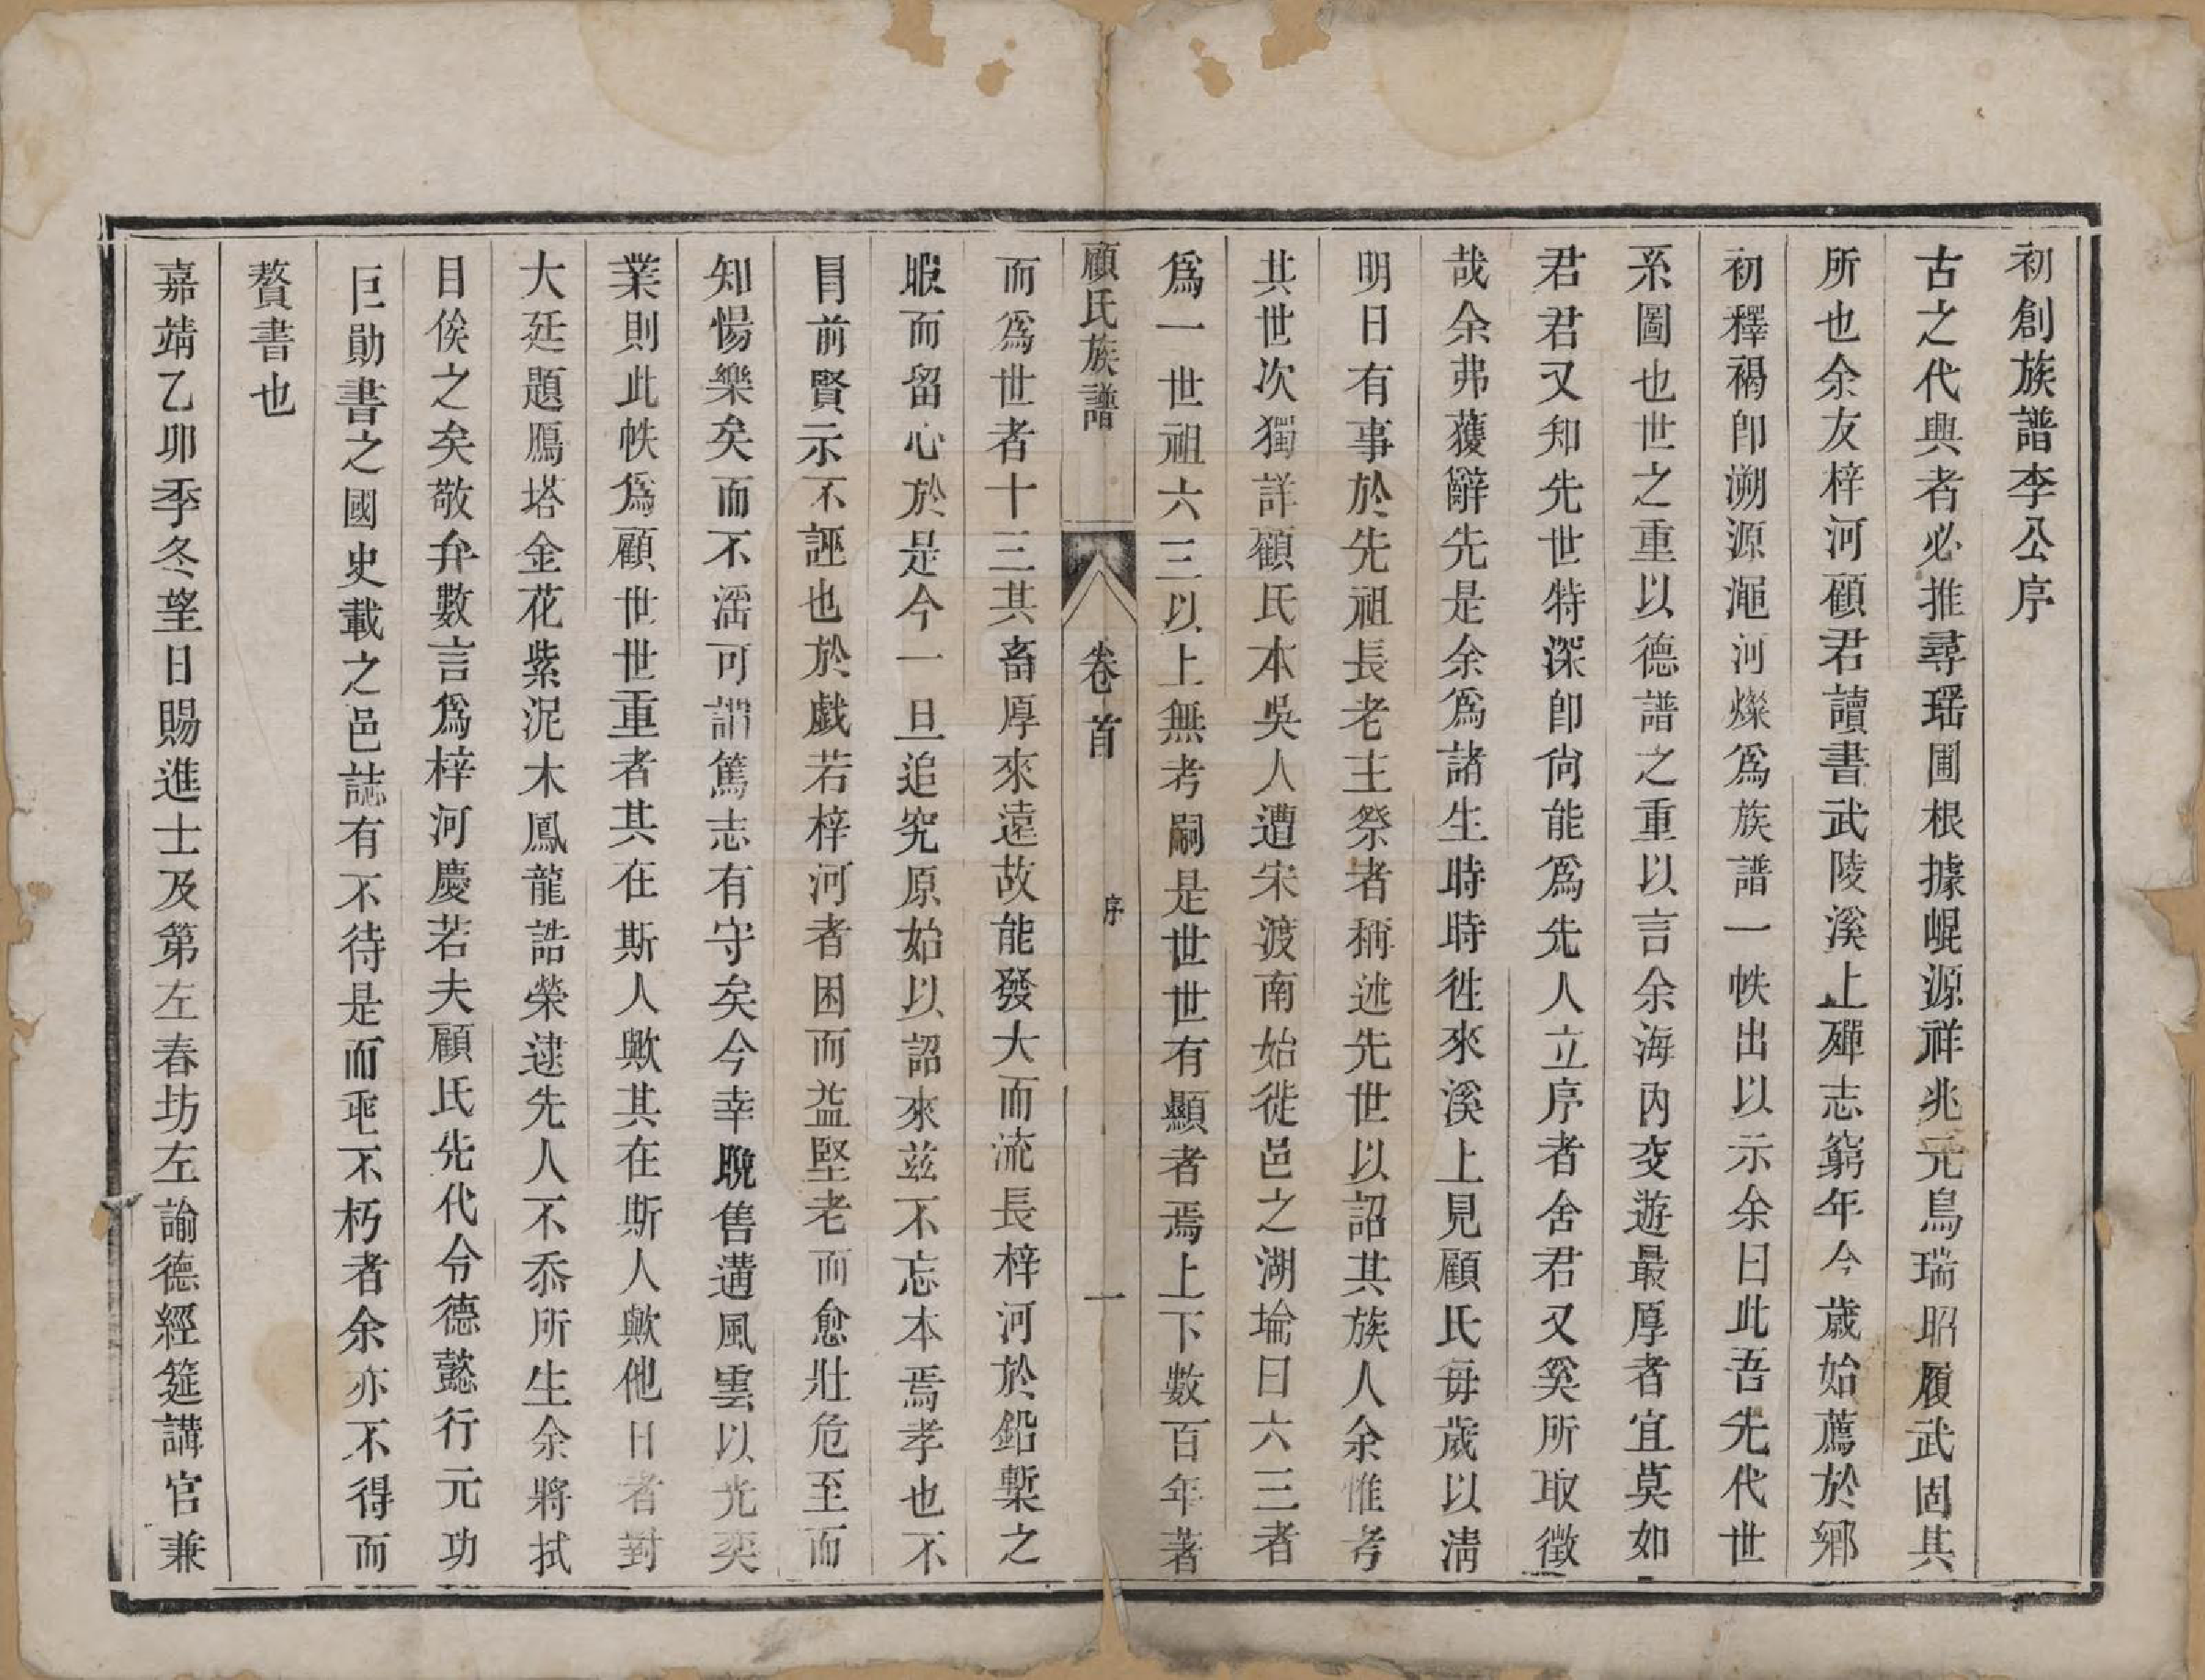 初創族譜李公序
古之代興者必推尋瑶圃根據崐源祥兆元鳥瑞昭履武固其
所也余友梓河顧君讀書武陵溪上殫志窮年今歲始薦於鄉
初釋褐卽溯源渑河燦爲族譜一帙出以示余曰此吾先代世
系圖也世之重以德譜之重以言余海內交遊最厚者宜莫如
君君又知先世特深卽尙能爲先人立序者舍君又奚所取徵
哉余弗獲辭先是余爲諸生時時徃來溪上見顧氏每歲以淸
明日有事於先祖長老主祭者稱述先世以詔其族人余惟考
其世次獨詳顧氏本吳人遭宋渡南始徙邑之湖埨曰六三者
爲一世祖六三以上無考嗣是世世有顯者焉上下數百年著
顧氏族譜 卷首 序 一
而爲世者十三其畜厚來遠故能發大而流長梓河於鉛槧之
暇而留心於是今一旦追究原始以詔來兹不忘本焉孝也不
冒前賢示不誣也於戲若梓河者困而益堅老而愈壯危至而
知惕樂矣而不滛可謂篤志有守矣今幸晩售遘風雲以光奕
業則此帙爲顧世世重者其在斯人歟其在斯人歟他日者對
大廷題鴈塔金花紫泥木鳳龍誥榮逮先人不忝所生余將拭
目俟之矣敬弁數言爲梓河慶若夫顧氏先代令德懿行元功
巨勛書之國史載之邑誌有不待是而乖不朽者余亦不得而
贅書也
嘉靖乙卯季冬望日賜進士及第左春坊左諭德經筵講官兼